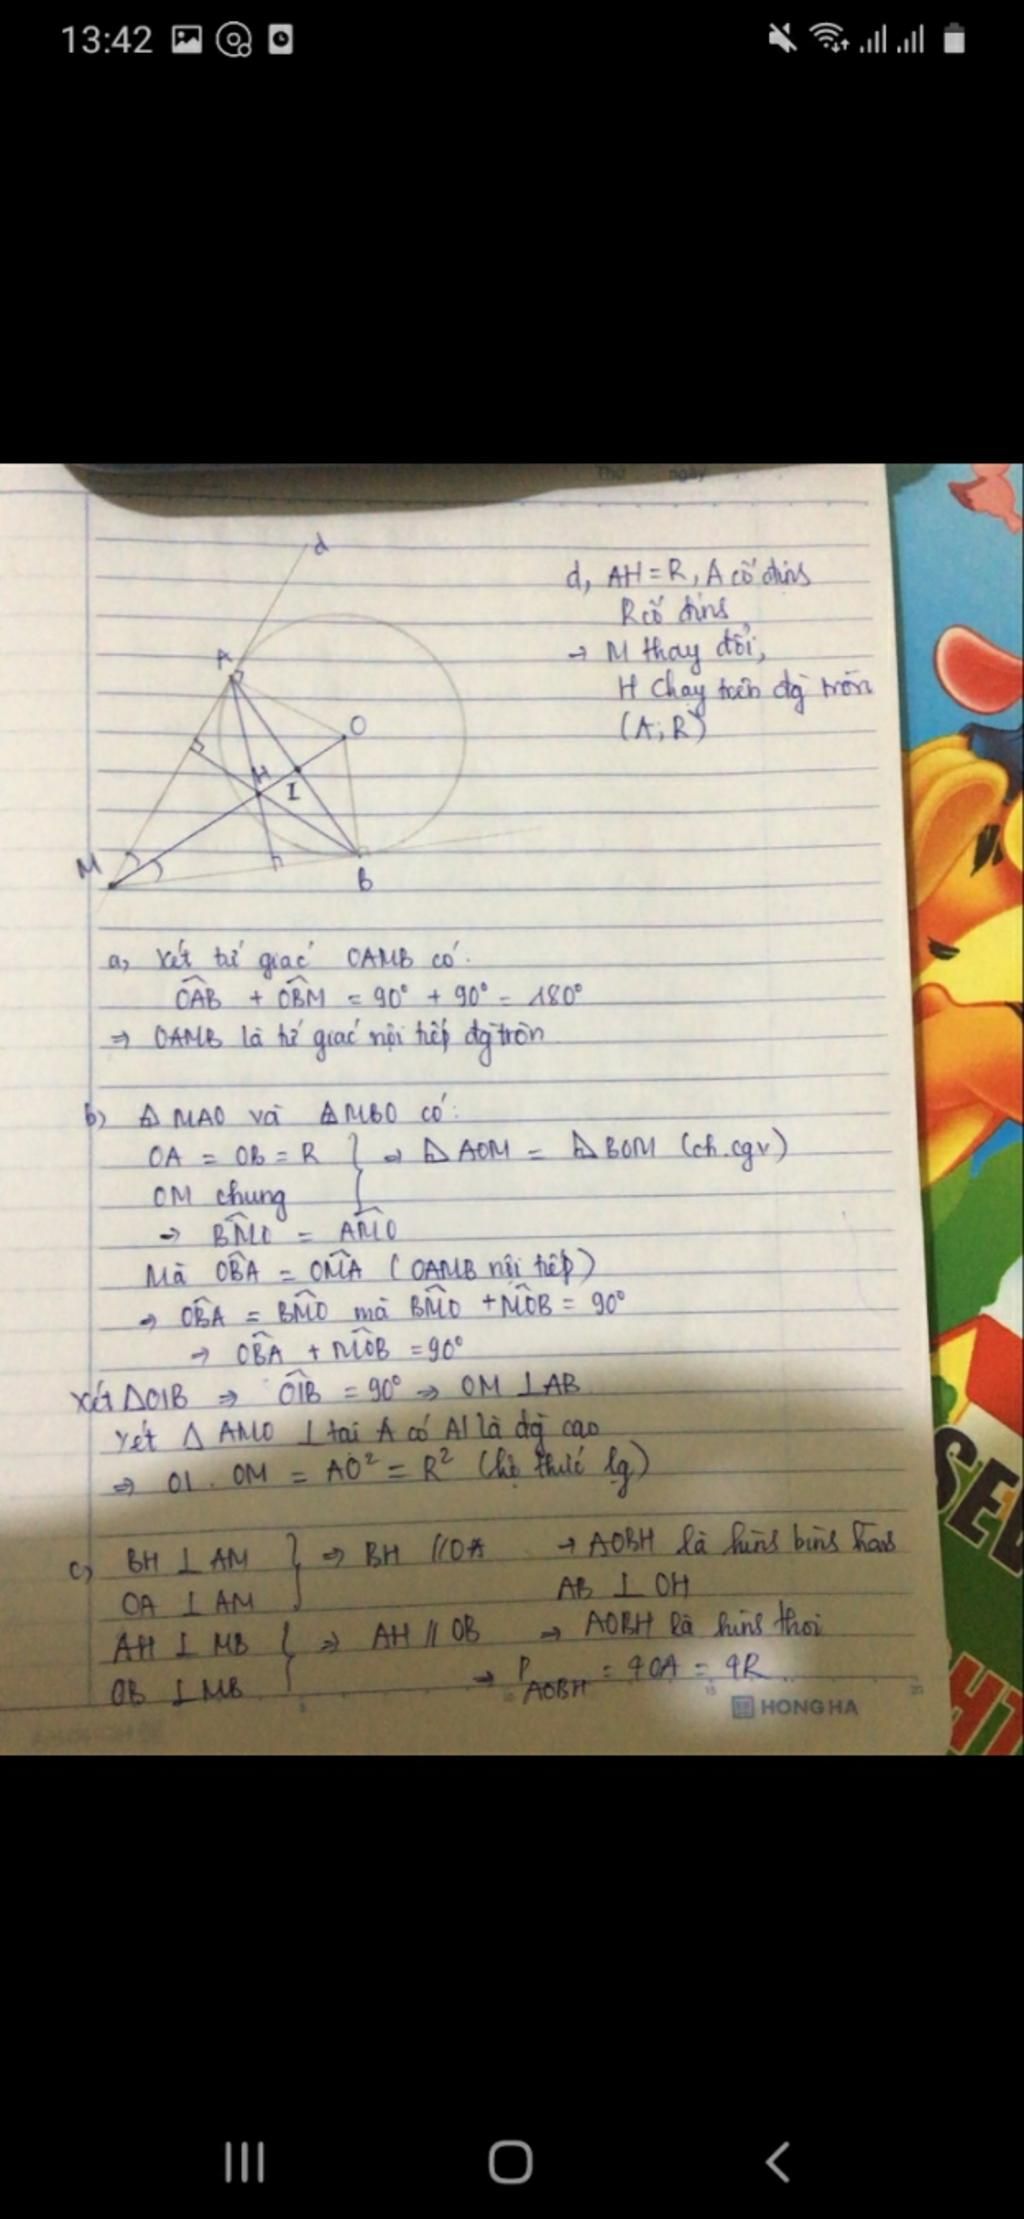 13:42
d
d, AH = R, A cố định
R cố định
→ M thay đổi,
H chạy trên đg tròn
(A; R)
A
O
H
I
M
B
a, Xét tứ giác OAMB có:
OAB + OBM = 90° + 90° = 180°
⇒ OAMB là tứ giác nội tiếp đg tròn
b) Δ MAO và Δ MBO có:
OA = OB = R } → Δ AOM = Δ BOM (ch.cgv)
OM chung
→ BMO = AMO
Mà OBA = OMA (OAMB nội tiếp)
→ OBA = BMO mà BMO + MOB = 90°
→ OBA + MOB = 90°
Xét ΔOIB ⇒ OIB = 90° ⇒ OM ⊥ AB
Xét Δ AMO ⊥ tại A có AI là đg cao
⇒ OI . OM = AO² = R² (hệ thức lg)
c, BH ⊥ AM } ⇒ BH // OA → AOBH là hình bình hành
OA ⊥ AM AB ⊥ OH
AH ⊥ MB { ⇒ AH // OB ⇒ AOBH là hình thoi
OB ⊥ MB → P AOBH = 4OA = 4R
HONG HA